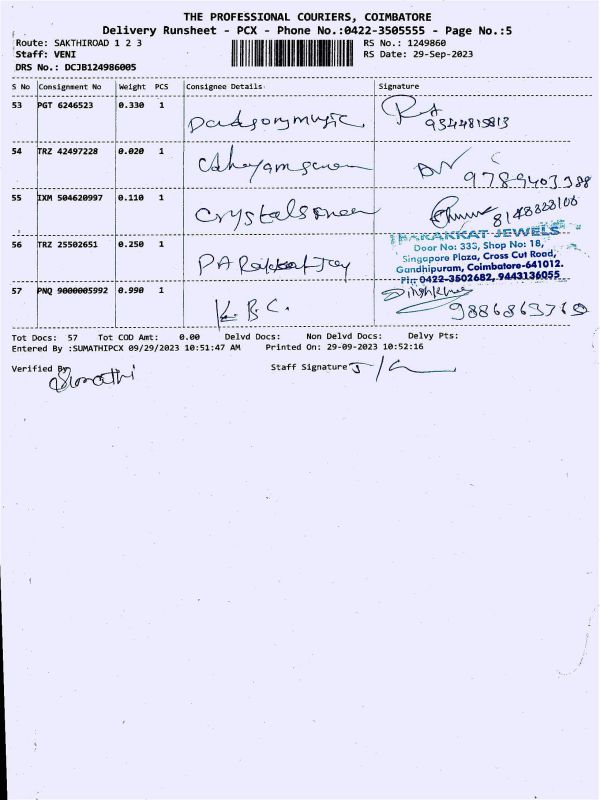 THE PROFESSIONAL COURIERS, COIMBATORE
Delivery Runsheet - PCX - Phone No.:0422-3505555 - Page No.:5
Route: SAKTHIROAD 1 2 3 RS No.: 1249860
Staff: VENI RS Date: 29-Sep-2023
DRS No.: DCJB124986005
S No Consignment No Weight PCS Consignee Details Signature
53 PGT 6246523 0.330 1 9344815813
54 TRZ 42497228 0.020 1 9789403388
55 IXM 504620997 0.110 1 8148888100
THAKAKKAT JEWELS
56 TRZ 25502651 0.250 1 Door No: 333, Shop No: 18,
Singapore Plaza, Cross Cut Road,
Gandhipuram, Coimbatore-641012.
Ph: 0422-3502682, 9443136055
57 PNQ 9000005992 0.990 1 K.B.C. 9886863760
Tot Docs: 57 Tot COD Amt: 0.00 Delvd Docs: Non Delvd Docs: Delvy Pts:
Entered By :SUMATHIPCX 09/29/2023 10:51:47 AM Printed On: 29-09-2023 10:52:16
Verified By Sumathi Staff Signature